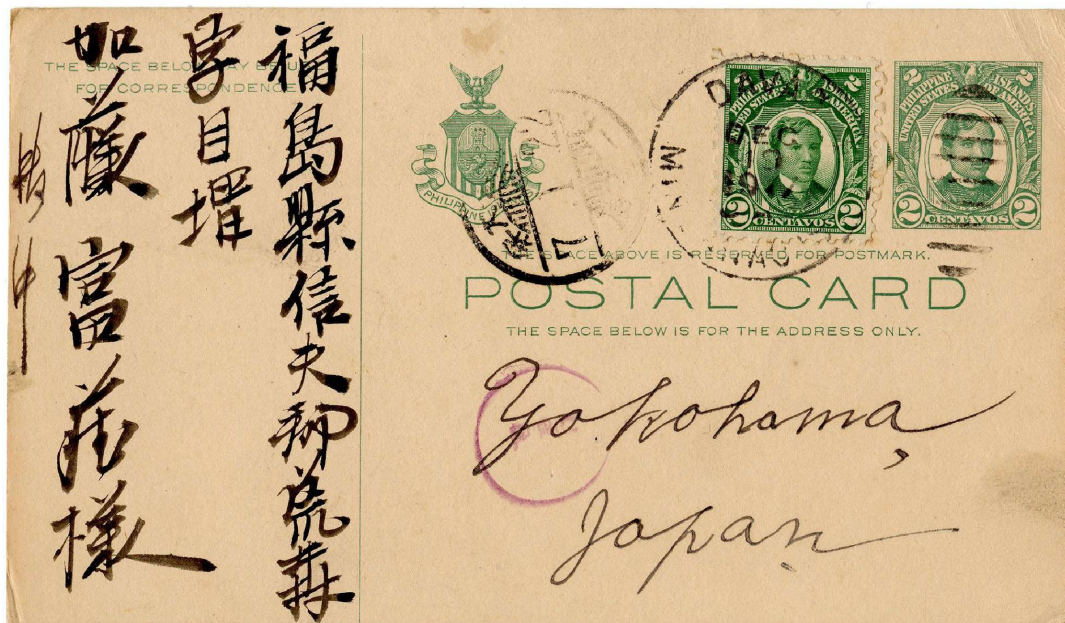 福島縣信夫郡荒井
字目揖
加藤富莊様
THE SPACE BELOW MAY BE USED
FOR CORRESPONDENCE
PHILIPPINE
PHILIPPINE ISLANDS
UNITED STATES OF AMERICA
2 CENTAVOS 2
PHILIPPINE ISLANDS
UNITED STATES OF AMERICA
2 CENTAVOS 2
DEC
THE SPACE ABOVE IS RESERVED FOR POSTMARK.
POSTAL CARD
THE SPACE BELOW IS FOR THE ADDRESS ONLY.
Yokohama,
Japan